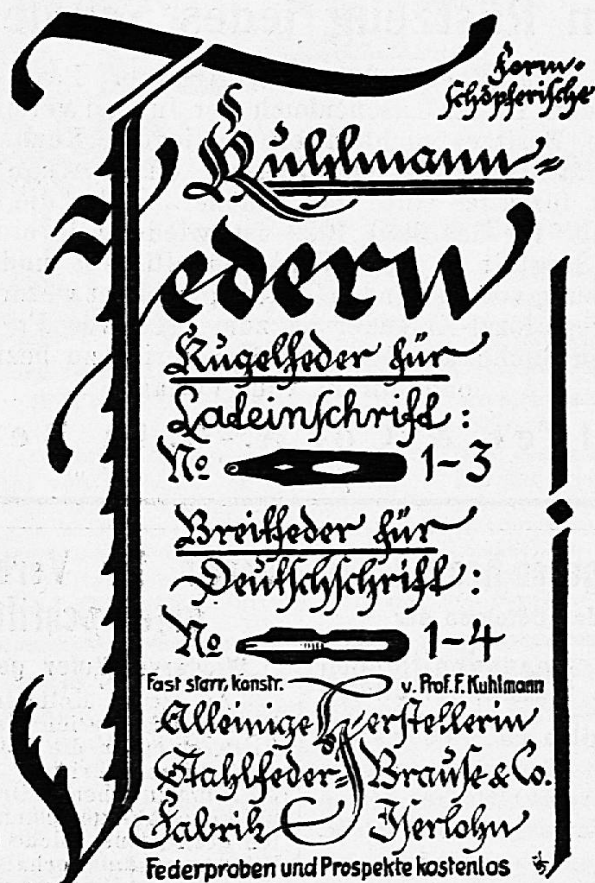 Form-
schöpferische
Kuhlmann-
Federn
Kugelfeder für
Lateinschrift:
No 1-3
Breitfeder für
Deutschschrift:
No 1-4
Fast starr, konstr. v. Prof. F. Kuhlmann
Alleinige Herstellerin
Stahlfeder- Brause & Co.
Fabrik Iserlohn
Federproben und Prospekte kostenlos